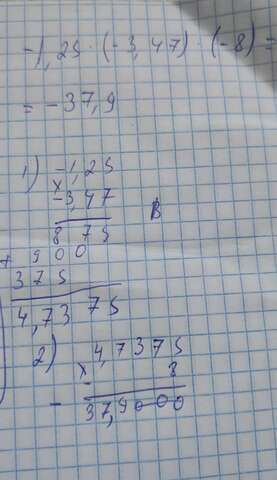 -1,25 · (-3,47) · (-8) =
= -37,9
1) -1,25
×
-3,47
8 75
+ 9 0 0
3 7 5
4,73 75
2) 4,7375
× - 8
- 37,9000